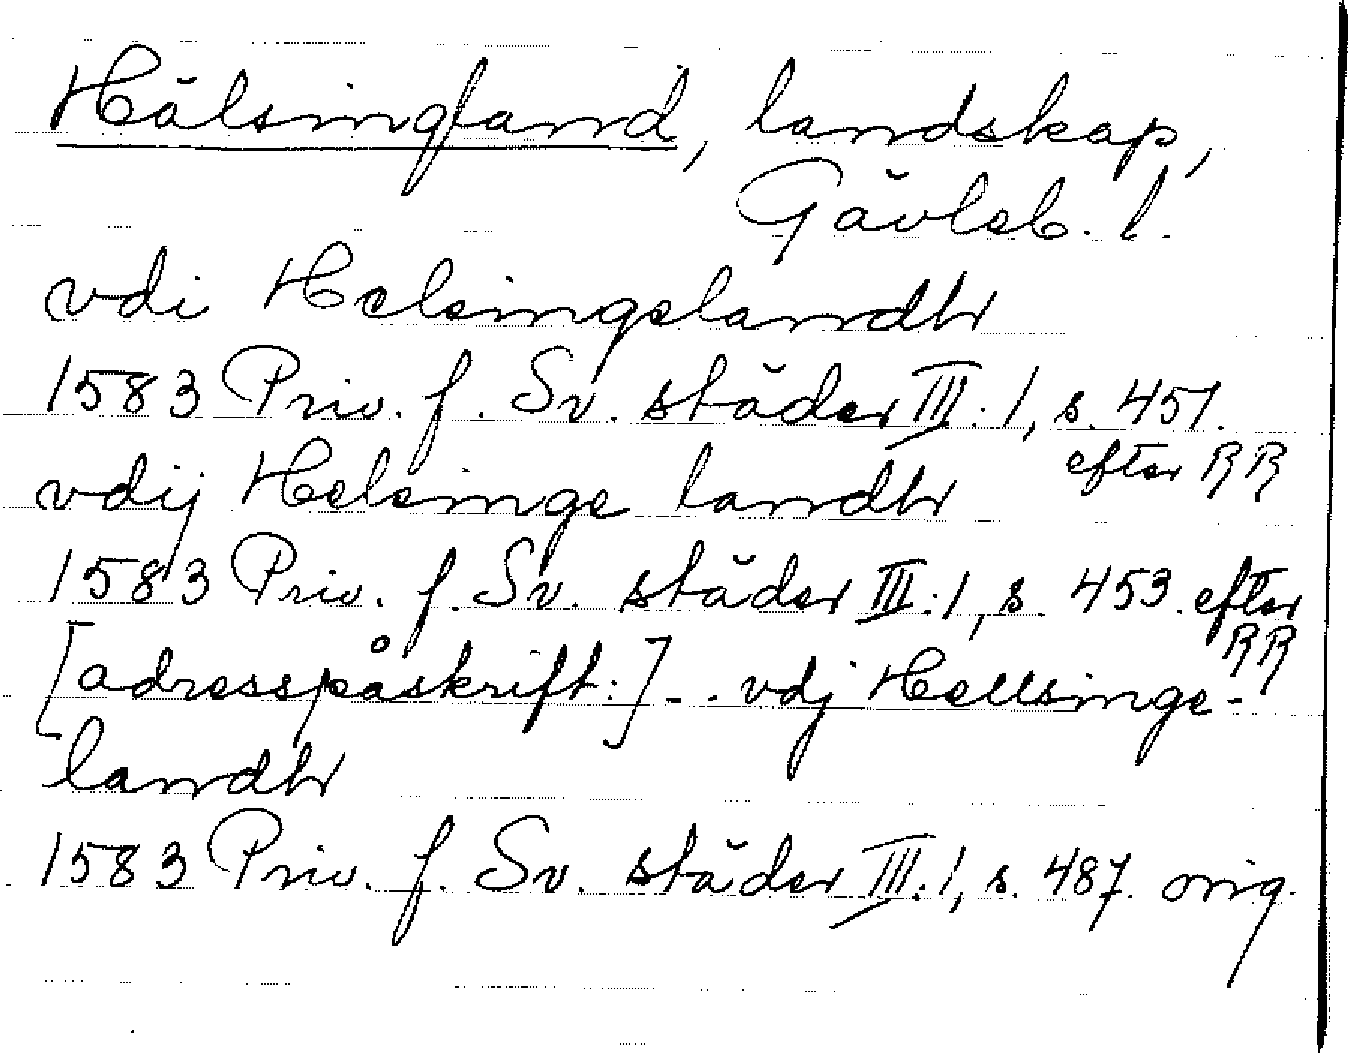 Hälsingland, landskap,
Gävleb. l.
vdi Helsingslandh
1583 Priv. f. Sv. städer III:1, s. 451.
efter RR
vdij Helsinge landh
1583 Priv. f. Sv. städer III:1, s. 453. efter
RR
[adresspåskrift:] - . . vdj Hellsinge-
landh
1583 Priv. f. Sv. städer III:1, s. 487. orig.